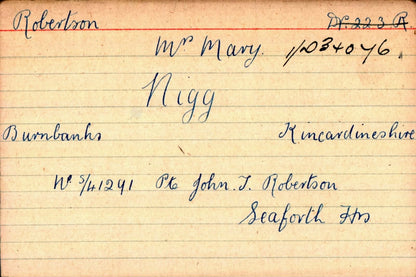 Robertson Dr. 223 R
Mrs Mary. 1/D34046
Nigg
Burnbanks Kincardineshire
No S/41291 Pte John. T. Robertson
Seaforth Hrs